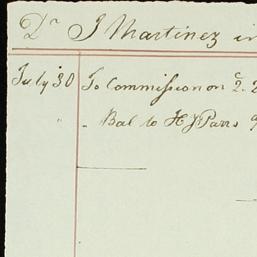 Dr J Martinez in
July 30 To Commission on
" Bal to H J Parrs